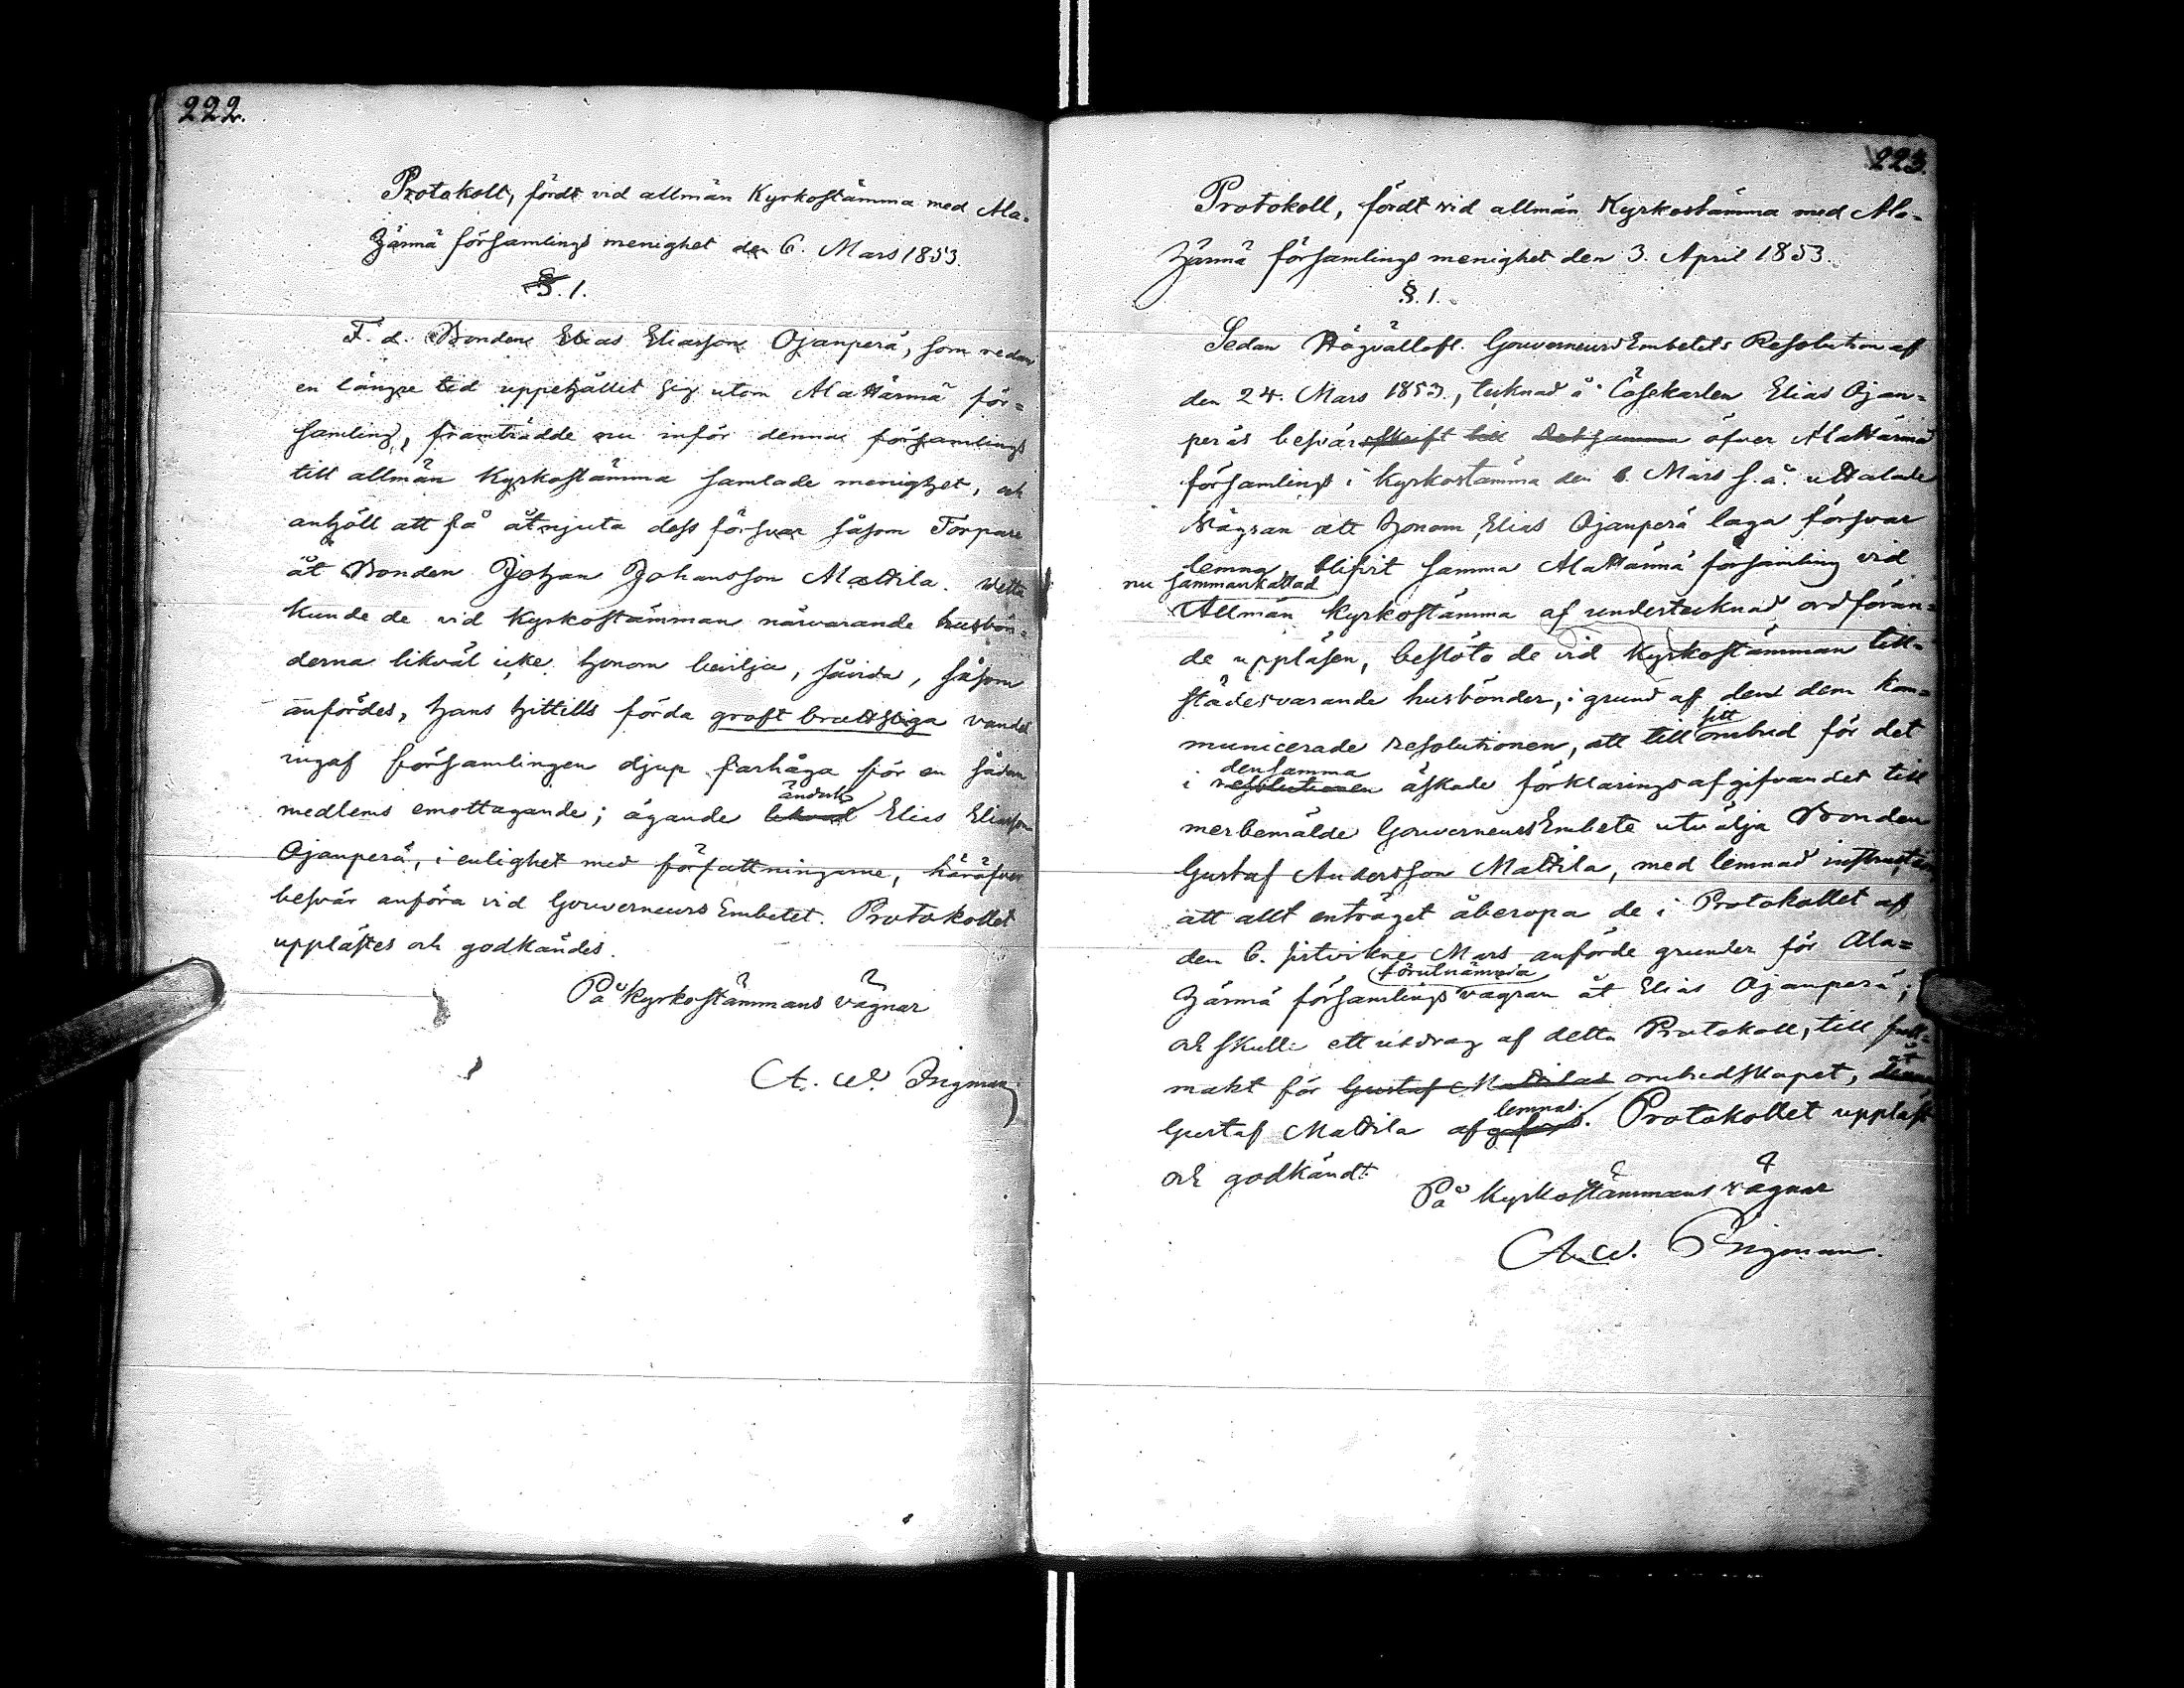 222.
Protokoll, fördt vid allmän Kyrkostämma med Ala=
Härmä församlings menighet den 6. Mars 1853.
§. 1.
F. d. Bonden Elias Eliasson Ojanperä, som redan
en längre tid uppehållit sig utom AlaHärmä för=
samling, framträdde nu inför denna församlings
till allmän Kyrkostämma samlade menighet, och
anhöll att få åtnjuta dess försvar såsom Torpare
åt Bonden Johan Johansson Mattila. Detta
kunde de vid Kyrkostämman närvarande husbön=
derna likväl icke honom bevilja, såvida, såsom
anfördes, hans hittills förda groft brottsliga vandel
ingaf församlingen djup farhåga för en sådan
medlems emottagande; ägande likväl Elias Eliasson
Ojanperä, i enlighet med författningarne, häröfver
besvär anföra vid Gouverneurs Embetet. Protokollet
upplästes och godkändes.
På Kyrkostämmans vägnar
A. W. Ingman
223.
Protokoll, fördt vid allmän Kyrkostämma med Ala=
Härmä församlings menighet den 3. April 1853.
§. 1.
Sedan Högvällofl. GouverneursEmbetets Resolution af
den 24. Mars 1853, tecknad å Lösekarlen Elias Ojan=
peräs besvärsskrift till öfver AlaHärmä
församlings i Kyrkostämma den 6. Mars s. å. uttalade
vägran att honom, Elias Ojanperä laga försvar
lemna, blifvit samma AlaHärmä församling vid
nu sammankallad
Allmän Kyrkostämma af undertecknad ordföran=
de uppläsen, beslöto de vid Kyrkostämman till=
städesvarande husbönder, i grund af den dem kom=
municerade resolutionen, att till sitt ombud för det
densamma
i resolutionen äskade förklarings afgifvandet till
merbemälde GouverneursEmbete utvälja Bonden
Gustaf Andersson Mattila, med lemnad instruction
att allt enträget åberopa de i Protokollet af
den 6. sistvikne Mars anförde grunder för Ala=
förutnämnda
Härmä församlings vägran åt Elias Ojanperä;
och skulle ett utdrag af detta Protokoll, till full=
makt för Gustaf Mattilas ombudskapet, åt
lemnas.
Gustaf Mattila afgifvas. Protokollet uppläst
och godkändt.
På Kyrkostämmans vägnar
A. W. Ingman.